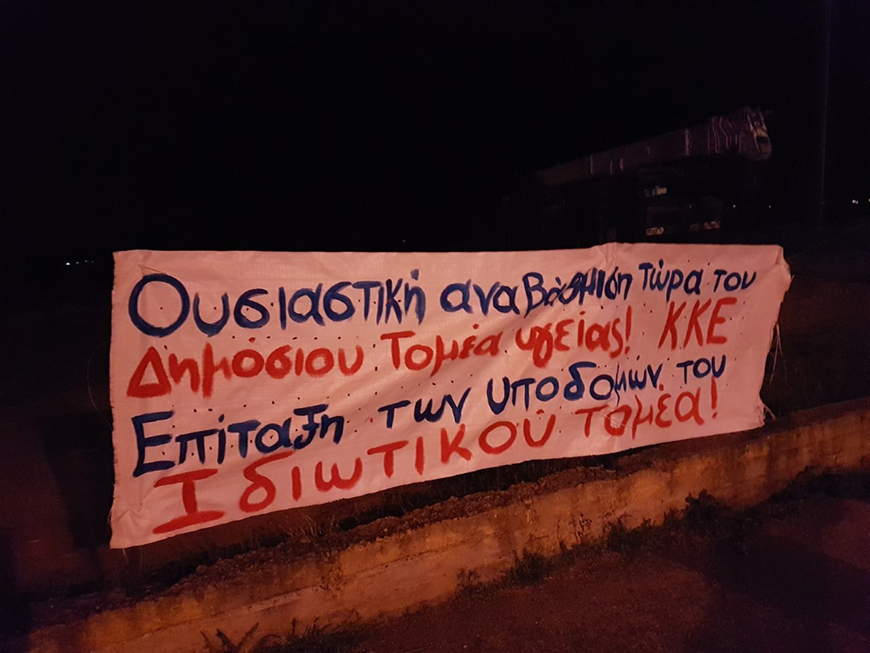 Ουσιαστική αναβάθμιση τώρα του
Δημόσιου Τομέα υγείας! ΚΚΕ
Επίταξη των υποδομών του
Ιδιωτικού τομέα!